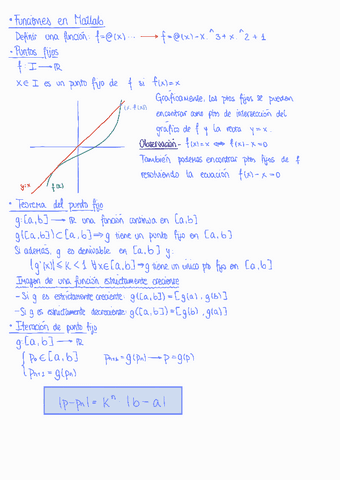 • Funciones en Matlab
Definir una función: f=@(x) ... → f=@(x)-x.^3+x.^2+1
• Puntos fijos
f: I → ℝ
x∈I es un punto fijo de f si f(x)=x
Gráficamente, los ptos fijos se pueden
encontrar como ptos de intersección del
gráfico de f y la recta y=x.
Observación- f(x)=x ⟺ f(x)-x=0
También podemos encontrar ptos fijos de f
resolviendo la ecuación f(x)-x=0
(x, f(x))
y=x
f(x)
• Teorema del punto fijo
g:[a,b] → ℝ una función continua en [a,b]
g([a,b])⊂[a,b] ⟹ g tiene un punto fijo en [a,b]
Si además, g es derivable en [a,b] y:
|g'(x)| ≤ K < 1 ∀x∈[a,b] ⟹ g tiene un único pto fijo en [a,b]
Imagen de una función estrictamente creciente
- Si g es estrictamente creciente: g([a,b]) = [g(a), g(b)]
- Si g es estrictamente decreciente: g([a,b]) = [g(b), g(a)]
• Iteración de punto fijo
g:[a,b] → ℝ
{ p₀ ∈ [a,b] pₙ₊₁ = g(pₙ) → p = g(p)
pₙ₊₁ = g(pₙ)
|p-pₙ| = Kⁿ |b-a|